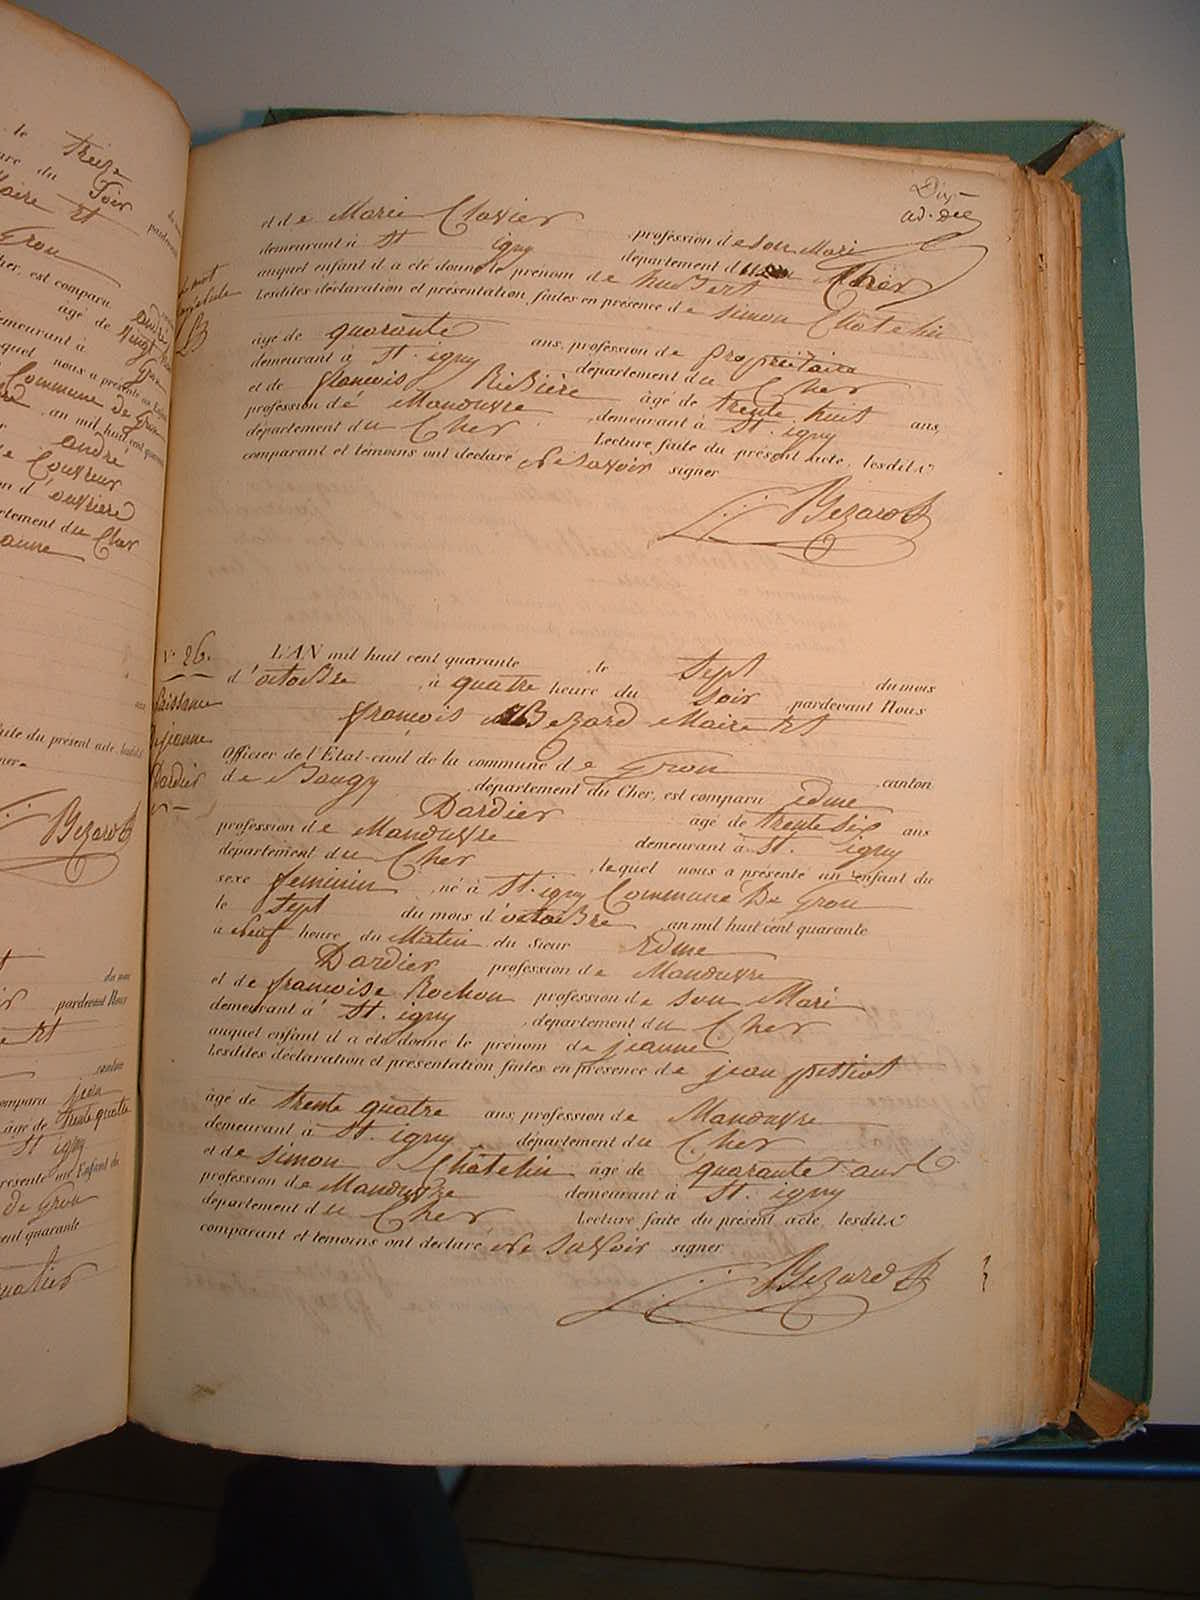 le treize
heure du Soir
Maire Et
Gron
Cher, est comparu
âgé de vingt
demeurant à
Commune de Gron
an mil huit cent quarante
andré
Couvreur
d'ouvriere
département du Cher
jeanne
Lecture faite du présent acte, lesdits
Bezard
pardevant Nous
Et
canton
comparu jean
âgé de trente quatre
St igny
présenté un Enfant du
de Gron
cent quarante
Dix
ad. dec
et de Marie Clavier profession de Son Mari
demeurant à St igny département du Cher
auquel enfant il a été donné le prénom de hubert
Lesdites déclaration et présentation faites en présence de Simon Châtelin
âgé de quarante ans, profession de propriétaire
demeurant à St. igny département du Cher
et de francois Ribière âgé de trente huit ans,
profession de Manouvre demeurant à St. igny
département du Cher Lecture faite du présent acte, lesdits
comparant et témoins ont déclaré Ne Savoir signer
Bezard
N.º 26.
Naissance
de jeanne
Dardier
L'AN mil huit cent quarante le Sept du mois
d'octobre à quatre heure du Soir pardevant Nous
françois Bezard Maire Et
Officier de l'État-civil de la commune de Gron canton
de Baugy département du Cher, est comparu Edme
Dardier âgé de trente Six ans
profession de Manouvre demeurant à St. igny
département du Cher lequel nous a présenté un enfant du
sexe feminin né à St. igny Commune De Gron
le Sept du mois d'octobre an mil huit cent quarante
à Neuf heure du Matin du sieur Edme
Dardier profession de Manouvre
et de francoise Rochon profession de Son Mari
demeurant à St. igny département du Cher
auquel enfant il a été donné le prénom de jeanne
Lesdites déclaration et présentation faites en présence de jean
âgé de trente quatre ans, profession de Manouvre
demeurant à St. igny département du Cher
et de Simon Châtelin âgé de quarante
profession de Manouvre demeurant à St. igny
département du Cher Lecture faite du présent acte, lesdits
comparant et témoins ont déclaré Ne Savoir signer
Bezard